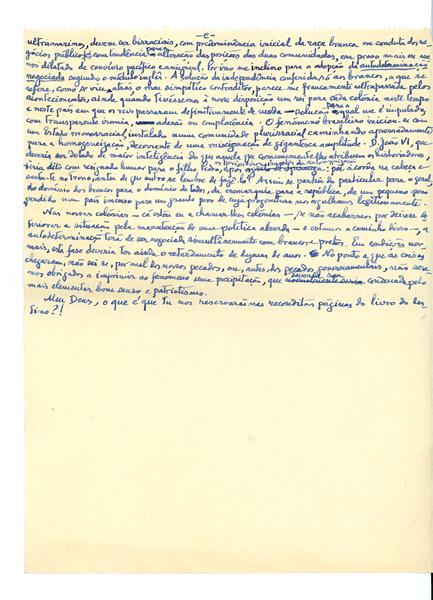 -C-
ultramarinos, devem ser birraciais, com predominância inicial da raça branca na conduta dos ne-
gócios públicos, com tendência para a alteração das posições das duas comunidades, em prazo mais ou me-
nos dilatado de convívio pacífico e amigável. Por isso me inclino para a adopção da autodeterminação
negociada segundo o modelo inglês. A solução da independência conferida só aos brancos, a que se
refere, como se viu atrás, o meu simpático contraditor, parece-me francamente ultrapassada pelos
acontecimentos, ainda quando tivéssemos à nossa disposição um rei para cada colónia neste tempo
e neste país em que os reis passaram definitivamente de moda - solução para a qual me é imputada,
com transparente ironia, adesão ou complacência. O fenómeno brasileiro iniciou-se com
um Estado monorracial, instalado numa comunidade plurirracial caminhando apressadamente
para a homogeneização, decorrente de uma miscigenação de gigantesca amplitude. D. João VI, que
devia ser dotado de maior inteligência do que aquela que comummente lhe atribuem os historiadores,
teria dito com resignado humor para o filho Pedro, após os primeiros : põe a coroa na cabeça e
senta-te no trono, antes de que outro se lembre de fazê-lo! Assim se partiu do particular para o geral,
do domínio dos brancos para o domínio de todos, da monarquia para a república, de um pequeno povo
perdido num país imenso para um grande povo de cuja progenitura nos orgulhamos legitimamente.
Nas nossas colónias - cá estou eu a chamar-lhes colónias -, se não acabarmos por deixar de-
teriorar a situação pela manutenção de uma política absurda - e estamos a caminho disso -, a
autodeterminação terá de ser negociada simultaneamente com brancos e pretos. Em condições nor-
mais, esta fase deveria ter ainda o retardamento de dezenas de anos. No ponto a que as coisas
chegaram, não sei se, por mal dos nossos pecados, ou, antes, dos pecados governamentais, não sere-
mos obrigados a imprimir ao fenómeno uma precipitação, que deveria ser condenada pelo
mais elementar bom senso e patriotismo.
Meu Deus, o que é que Tu nos reservarás nas recônditas páginas do livro do des-
tino?!